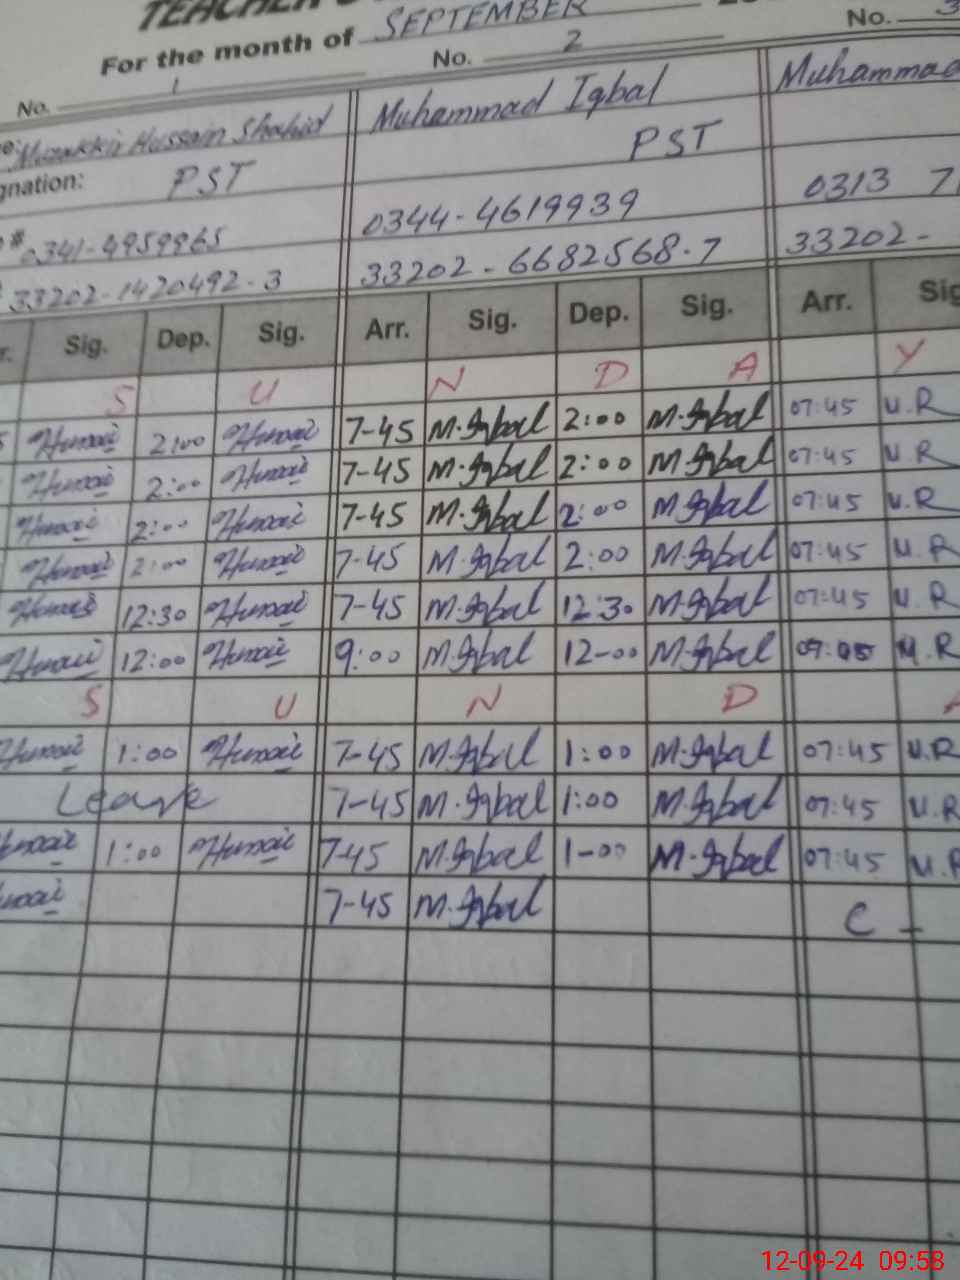 TEACHER
For the month of SEPTEMBER
No. 1 No. 2 No. 3
Hussain Shahid Muhammad Iqbal Muhammad
gnation: PST PST
# 0341-4959965 0344-4619939 0313 71
33202-1420492-3 33202-6682568-7 33202-
r. Sig. Dep. Sig. Arr. Sig. Dep. Sig. Arr. Sig
S U N D A Y
2:00 7-45 M.Iqbal 2:00 M.Iqbal 07:45 U.R
2:00 7-45 M.Iqbal 2:00 M.Iqbal 07:45 U.R
2:00 7-45 M.Iqbal 2:00 M.Iqbal 07:45 U.R
2:00 7-45 M.Iqbal 2:00 M.Iqbal 07:45 U.R
12:30 7-45 M.Iqbal 12:30 M.Iqbal 07:45 U.R
12:00 9:00 M.Iqbal 12-00 M.Iqbal M.R
S U N D A
1:00 7-45 M.Iqbal 1:00 M.Iqbal 07:45 U.R
Leave 7-45 M.Iqbal 1:00 M.Iqbal 07:45 U.R
1:00 7-45 M.Iqbal 1-00 M.Iqbal 07:45 U.R
7-45 M.Iqbal C -
12-09-24 09:58